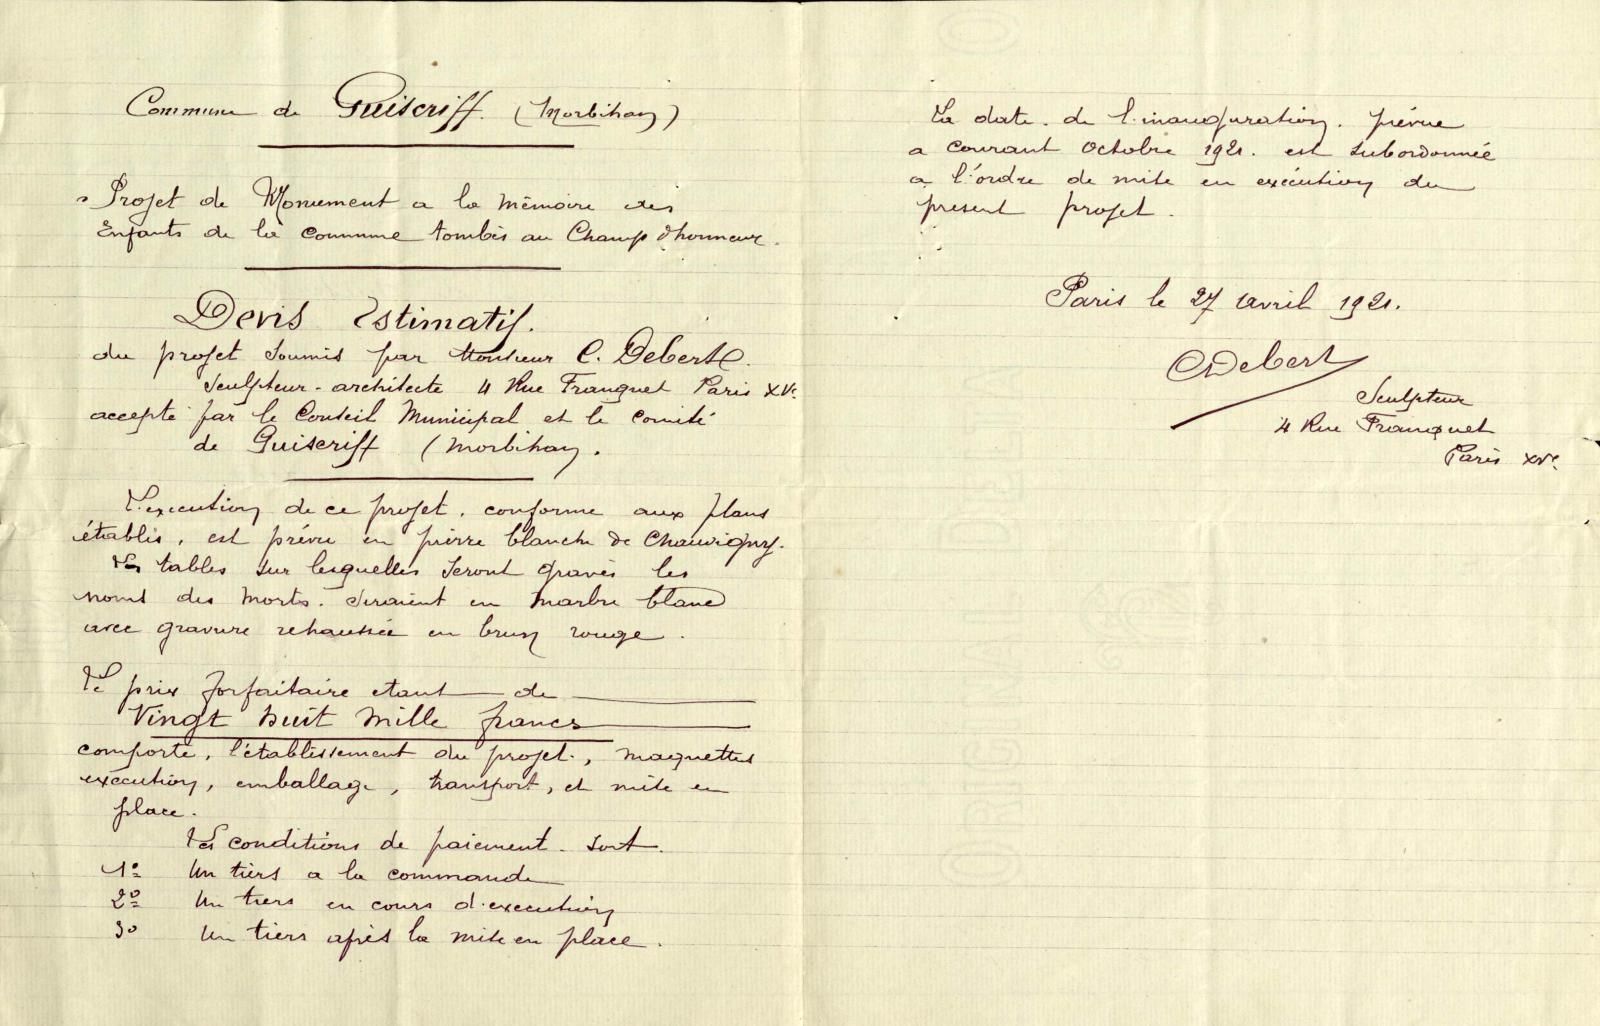 Commune de Guiscriff. (Morbihan)
Projet de Monument a la mémoire des
Enfants de la commune tombés au Champ d'honneur.
Devis Estimatif.
du projet soumis par Monsieur C. Debert
sculpteur-architecte 4 Rue Franquet Paris XVe
accepté par le Conseil Municipal et le comité
de Guiscriff (Morbihan.
L'execution de ce projet. conforme aux plans
établis, est prévu en pierre blanche de Chauvigny.
Les tables sur lesquelles seront gravés les
noms des morts. seraient en marbre blanc
avec gravure rehaussée en brun rouge.
Le prix forfaitaire etant de
Vingt huit mille francs
comporte, l'établissement du projet, maquettes
exécution, emballage, transport, et mise en
place.
Les conditions de paiement. sont.
1º Un tiers a la commande
2º Un tiers en cours d'execution
3º Un tiers après la mise en place.
La date. de l'inauguration. prévue
a courant Octobre 1921. est subordonnée
a l'ordre de mise en exécution du
présent projet.
Paris le 27 avril 1921.
CDebert
Sculpteur
4 Rue Franquet
Paris XVe